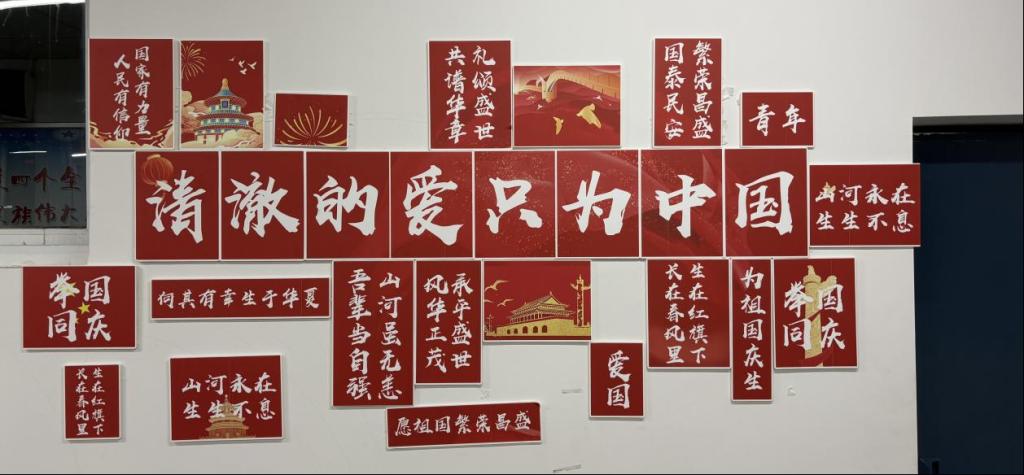 国家有力量
人民有信仰
礼颂盛世
共谱华章
繁荣昌盛
国泰民安
青年
清澈的爱只为中国
山河永在
生生不息
举国
同庆
何其有幸生于华夏
山河虽无恙
吾辈当自强
承平盛世
风华正茂
生在红旗下
长在春风里
为祖国庆生
举国
同庆
爱国
生在红旗下
长在春风里
山河永在
生生不息
愿祖国繁荣昌盛
四个全
族伟大